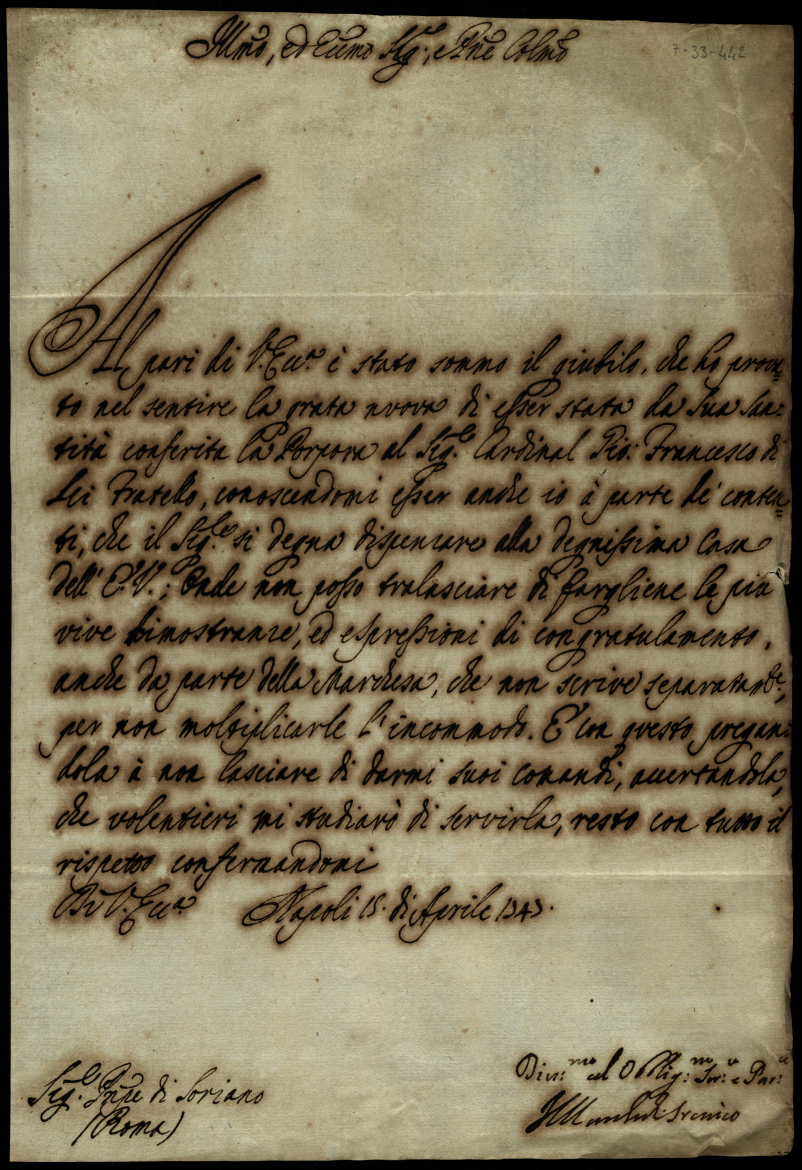 Illmo, ed Eccmo Sigr., e Pne Colmo
7-33-442
Al pari di V. Ecca è stato sommo il giubilo, che ho prova=
to nel sentire la grata nuova di esser stata da Sua San=
tità conferita la Porpora al Sigr. Cardinal Gio: Francesco di
Lei Fratello, conoscendomi esser anche io à parte de' conten=
ti, che il Sigre si degna dispensare alla degnissima Casa
dell' E. V.; Onde non posso tralasciare di fargliene le piu
vive dimostranze, ed espressioni di congratulamento,
anche da parte della Marchesa, che non scrive separatamte,
per non moltiplicarle l'incommodo. E con questo pregan=
dola à non lasciare di darmi suoi comandi, accertandola,
che volentieri mi studiarò di servirla, resto con tutto il
rispetto confermandomi
Di V. Ecca Napoli 15. di Aprile 1743.
Div:mo ed Oblig:mo Ser:e e Par:e
Sigr. Pnpe di Soriano
(Roma)